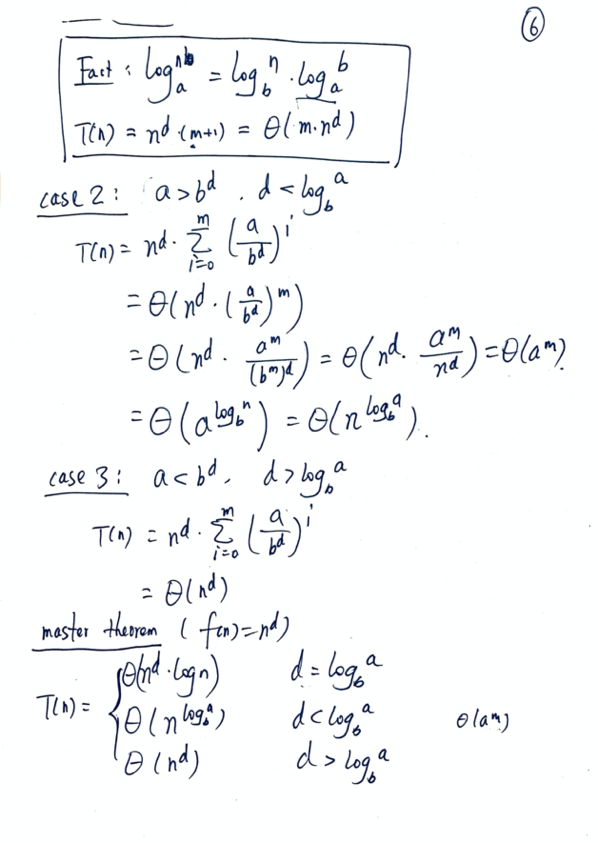 ⑥
Fact : log_a^n = log_b^n · log_a^b
T(n) = n^d · (m+1) = Θ(m·n^d)
case 2 : a > b^d , d < log_b^a
T(n) = n^d · Σ_{i=0}^{m} (a/b^d)^i
= Θ(n^d · (a/b^d)^m)
= Θ(n^d · a^m/(b^m)^d) = Θ(n^d · a^m/n^d) = Θ(a^m).
= Θ(a^{log_b^n}) = Θ(n^{log_b^a}).
case 3 : a < b^d, d > log_b^a
T(n) = n^d · Σ_{i=0}^{m} (a/b^d)^i
= Θ(n^d)
master theorem ( f(n)=n^d)
T(n) = { Θ(n^d · log n) d = log_b^a
Θ(n^{log_b^a}) d < log_b^a Θ(a^m)
Θ(n^d) d > log_b^a